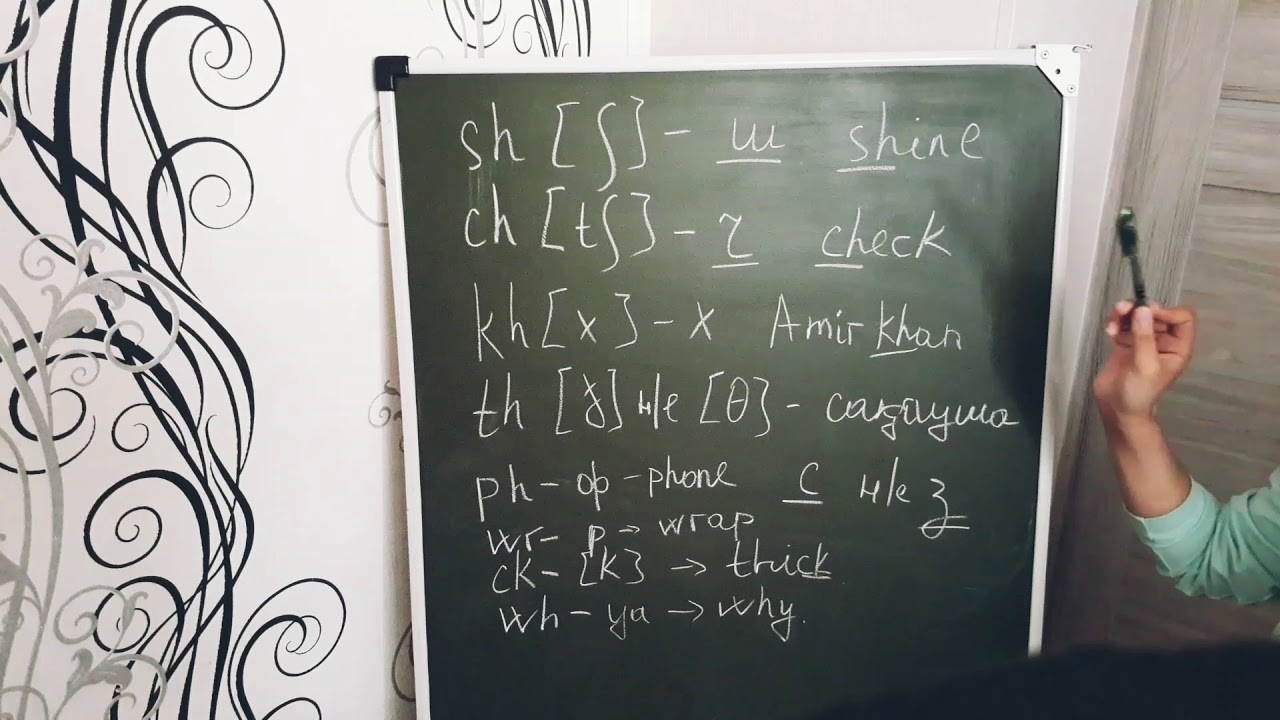 sh [ʃ] - ш shine
ch [tʃ] - ч check
kh [x] - x Amir khan
th [ʒ] н/е [θ] - сақауша
ph - ф - phone с н/е з
wr - р → wrap
ck - [k] → thick
wh - уа → why.